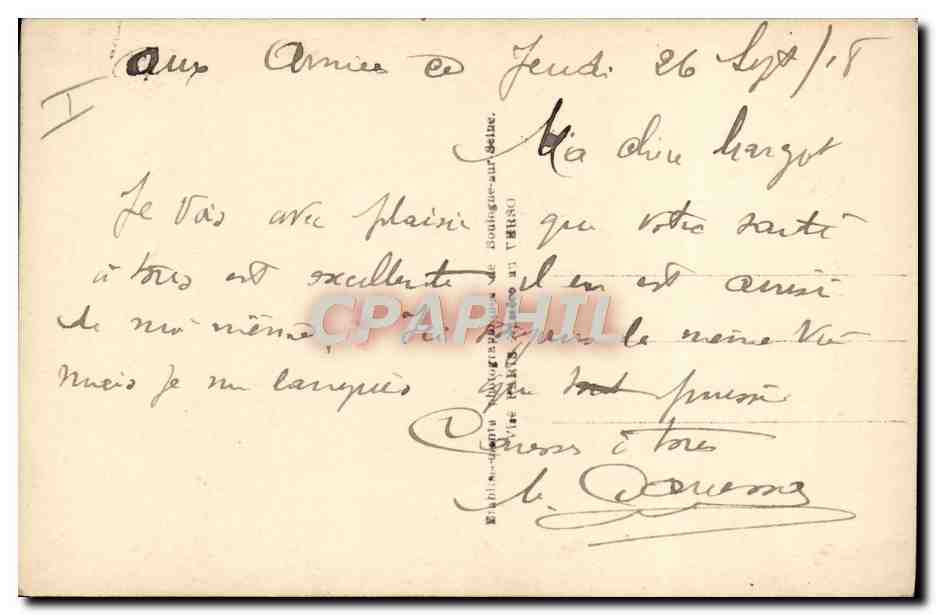 aux Armées ce Jeudi 26 Sept/18
I
Ma chère Margot
Je vois avec plaisir que votre santé
à tous est excellente il en est aussi
de moi même, Ici toujours la même vie
mais je me languis que tout puisse
Caresses à tous
Etablissements Photographiques de Boulogne-sur-Seine.
Visé PARIS Numéro au VERSO
CPAPHIL